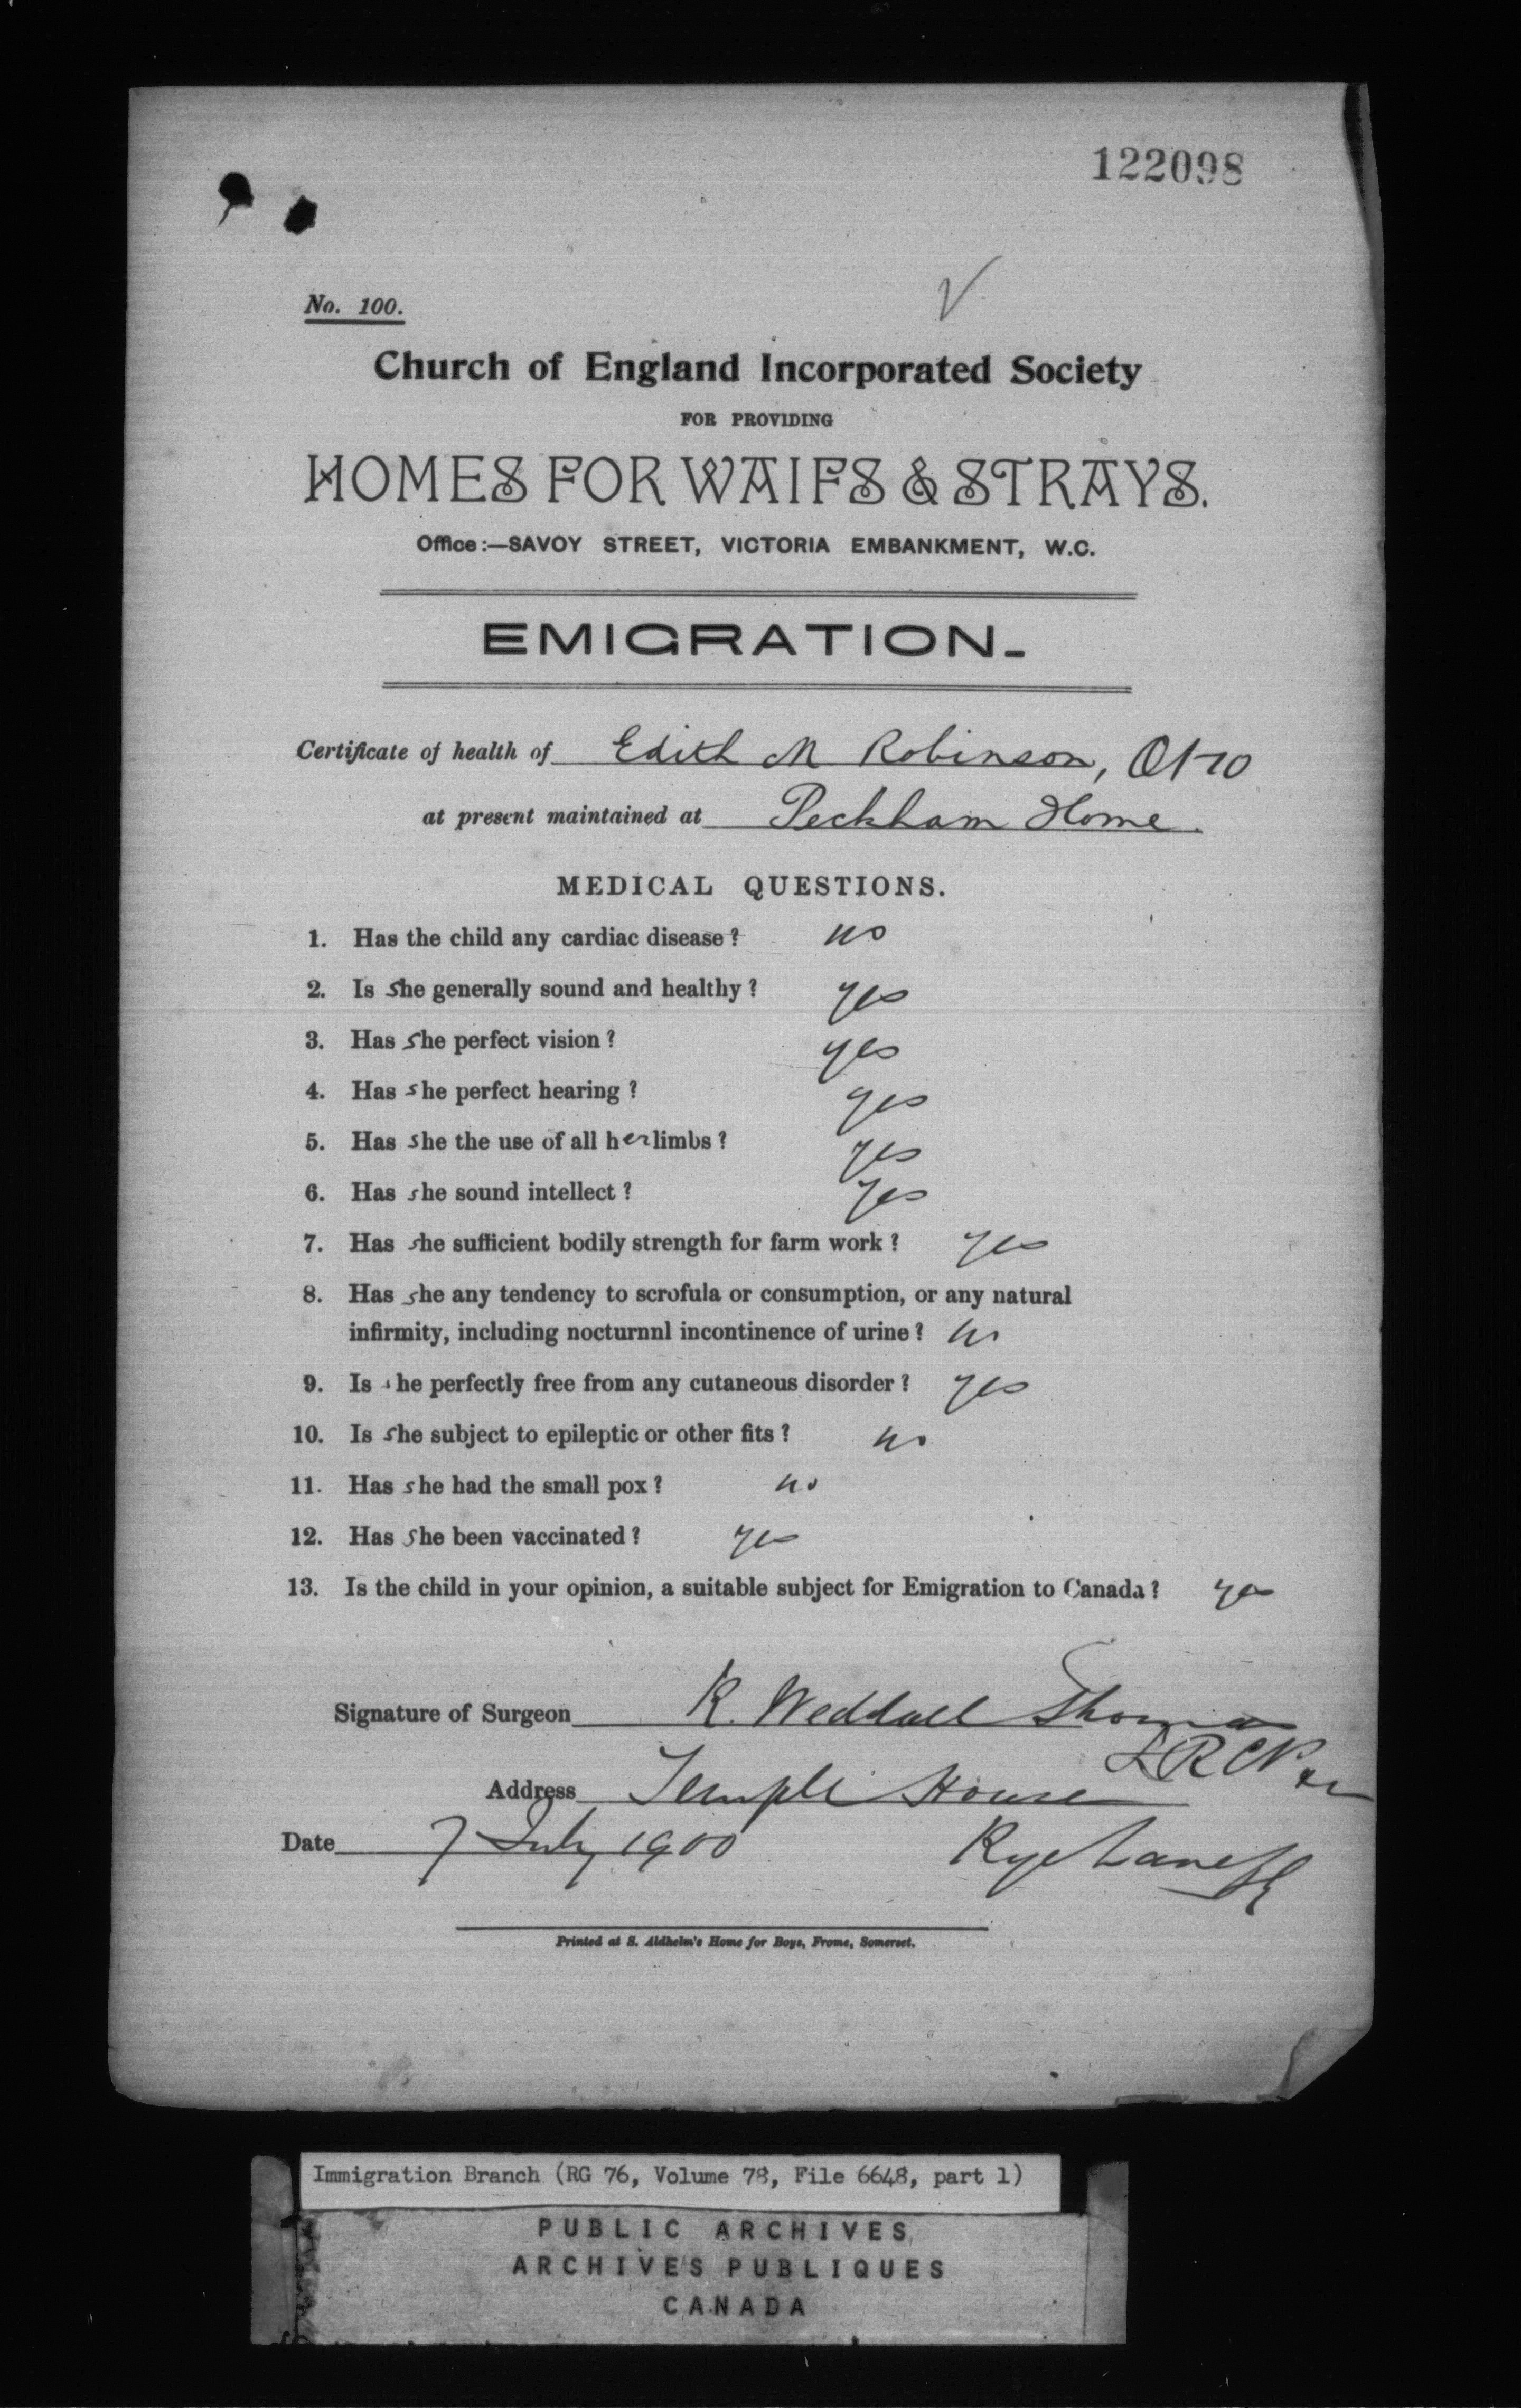 122098
No. 100.
Church of England Incorporated Society
FOR PROVIDING
HOMES FOR WAIFS & STRAYS.
Office:—SAVOY STREET, VICTORIA EMBANKMENT, W.C.
EMIGRATION.
Certificate of health of Edith M Robinson,
at present maintained at Peckham Home.
MEDICAL QUESTIONS.
1. Has the child any cardiac disease? no
2. Is She generally sound and healthy? yes
3. Has She perfect vision? yes
4. Has she perfect hearing? yes
5. Has she the use of all her limbs? yes
6. Has she sound intellect? yes
7. Has she sufficient bodily strength for farm work? yes
8. Has she any tendency to scrofula or consumption, or any natural
infirmity, including nocturnnl incontinence of urine? no
9. Is she perfectly free from any cutaneous disorder? yes
10. Is She subject to epileptic or other fits? no
11. Has she had the small pox? no
12. Has She been vaccinated? yes
13. Is the child in your opinion, a suitable subject for Emigration to Canada? yes
Signature of Surgeon R. Weddall Thomas
LRCP
Address Temple House
Date 7 July 1900 Rye Lane
Printed at S. Aldhelm's Home for Boys, Frome, Somerset.
Immigration Branch (RG 76, Volume 78, File 6648, part 1)
PUBLIC ARCHIVES
ARCHIVES PUBLIQUES
CANADA